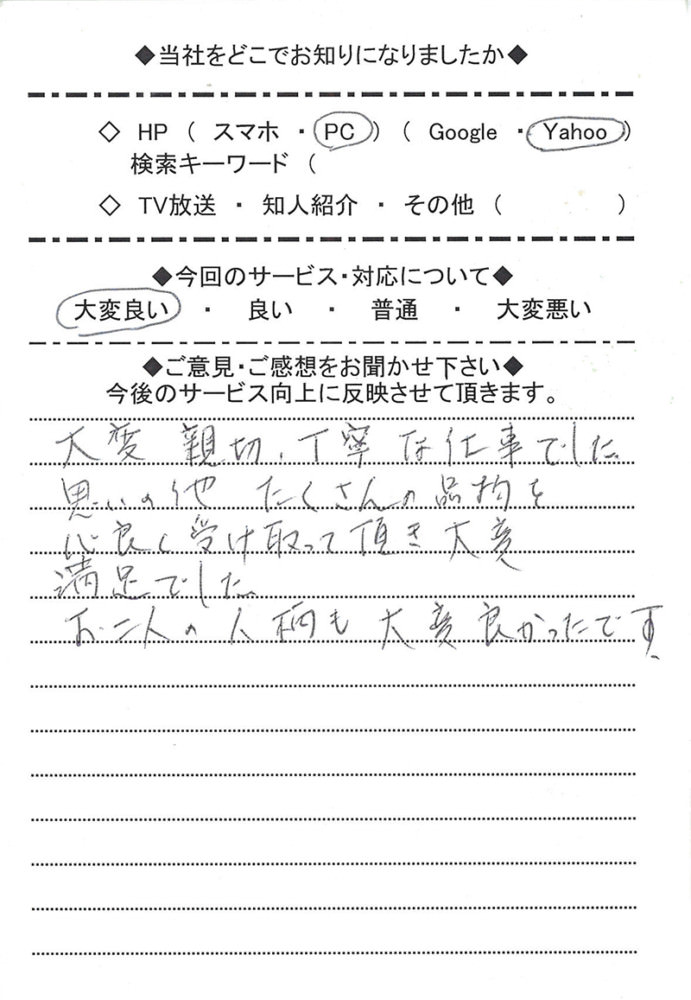 ◆当社をどこでお知りになりましたか◆
◇ HP ( スマホ ・ PC ) ( Google ・ Yahoo )
検索キーワード (
◇ TV放送 ・ 知人紹介 ・ その他 ( )
◆今回のサービス・対応について◆
大変良い ・ 良い ・ 普通 ・ 大変悪い
◆ご意見・ご感想をお聞かせ下さい◆
今後のサービス向上に反映させて頂きます。
大変 親切、丁寧な仕事でした
思いの他 たくさんの品物を
心良く受け取って頂き大変
満足でした。
お二人の人柄も大変良かったです、